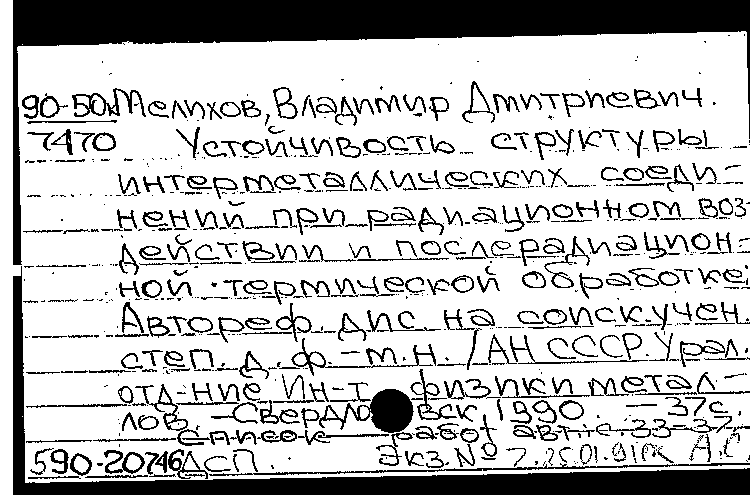 90-50к Мелихов, Владимир Дмитриевич.
7470 Устойчивость структуры
интерметаллических соеди-
нений при радиационном воз-
действии и послерадиацион-
ной термической обработке:
Автореф. дис. на соиск. учен.
степ. д. ф.-м. н. / АН СССР. Урал.
отд-ние Ин-т физики метал-
лов. - Свердловск, 1990. - 37с.
Список работ авт.: с. 33-37.
590-20746 ДСП. Экз. № 7.